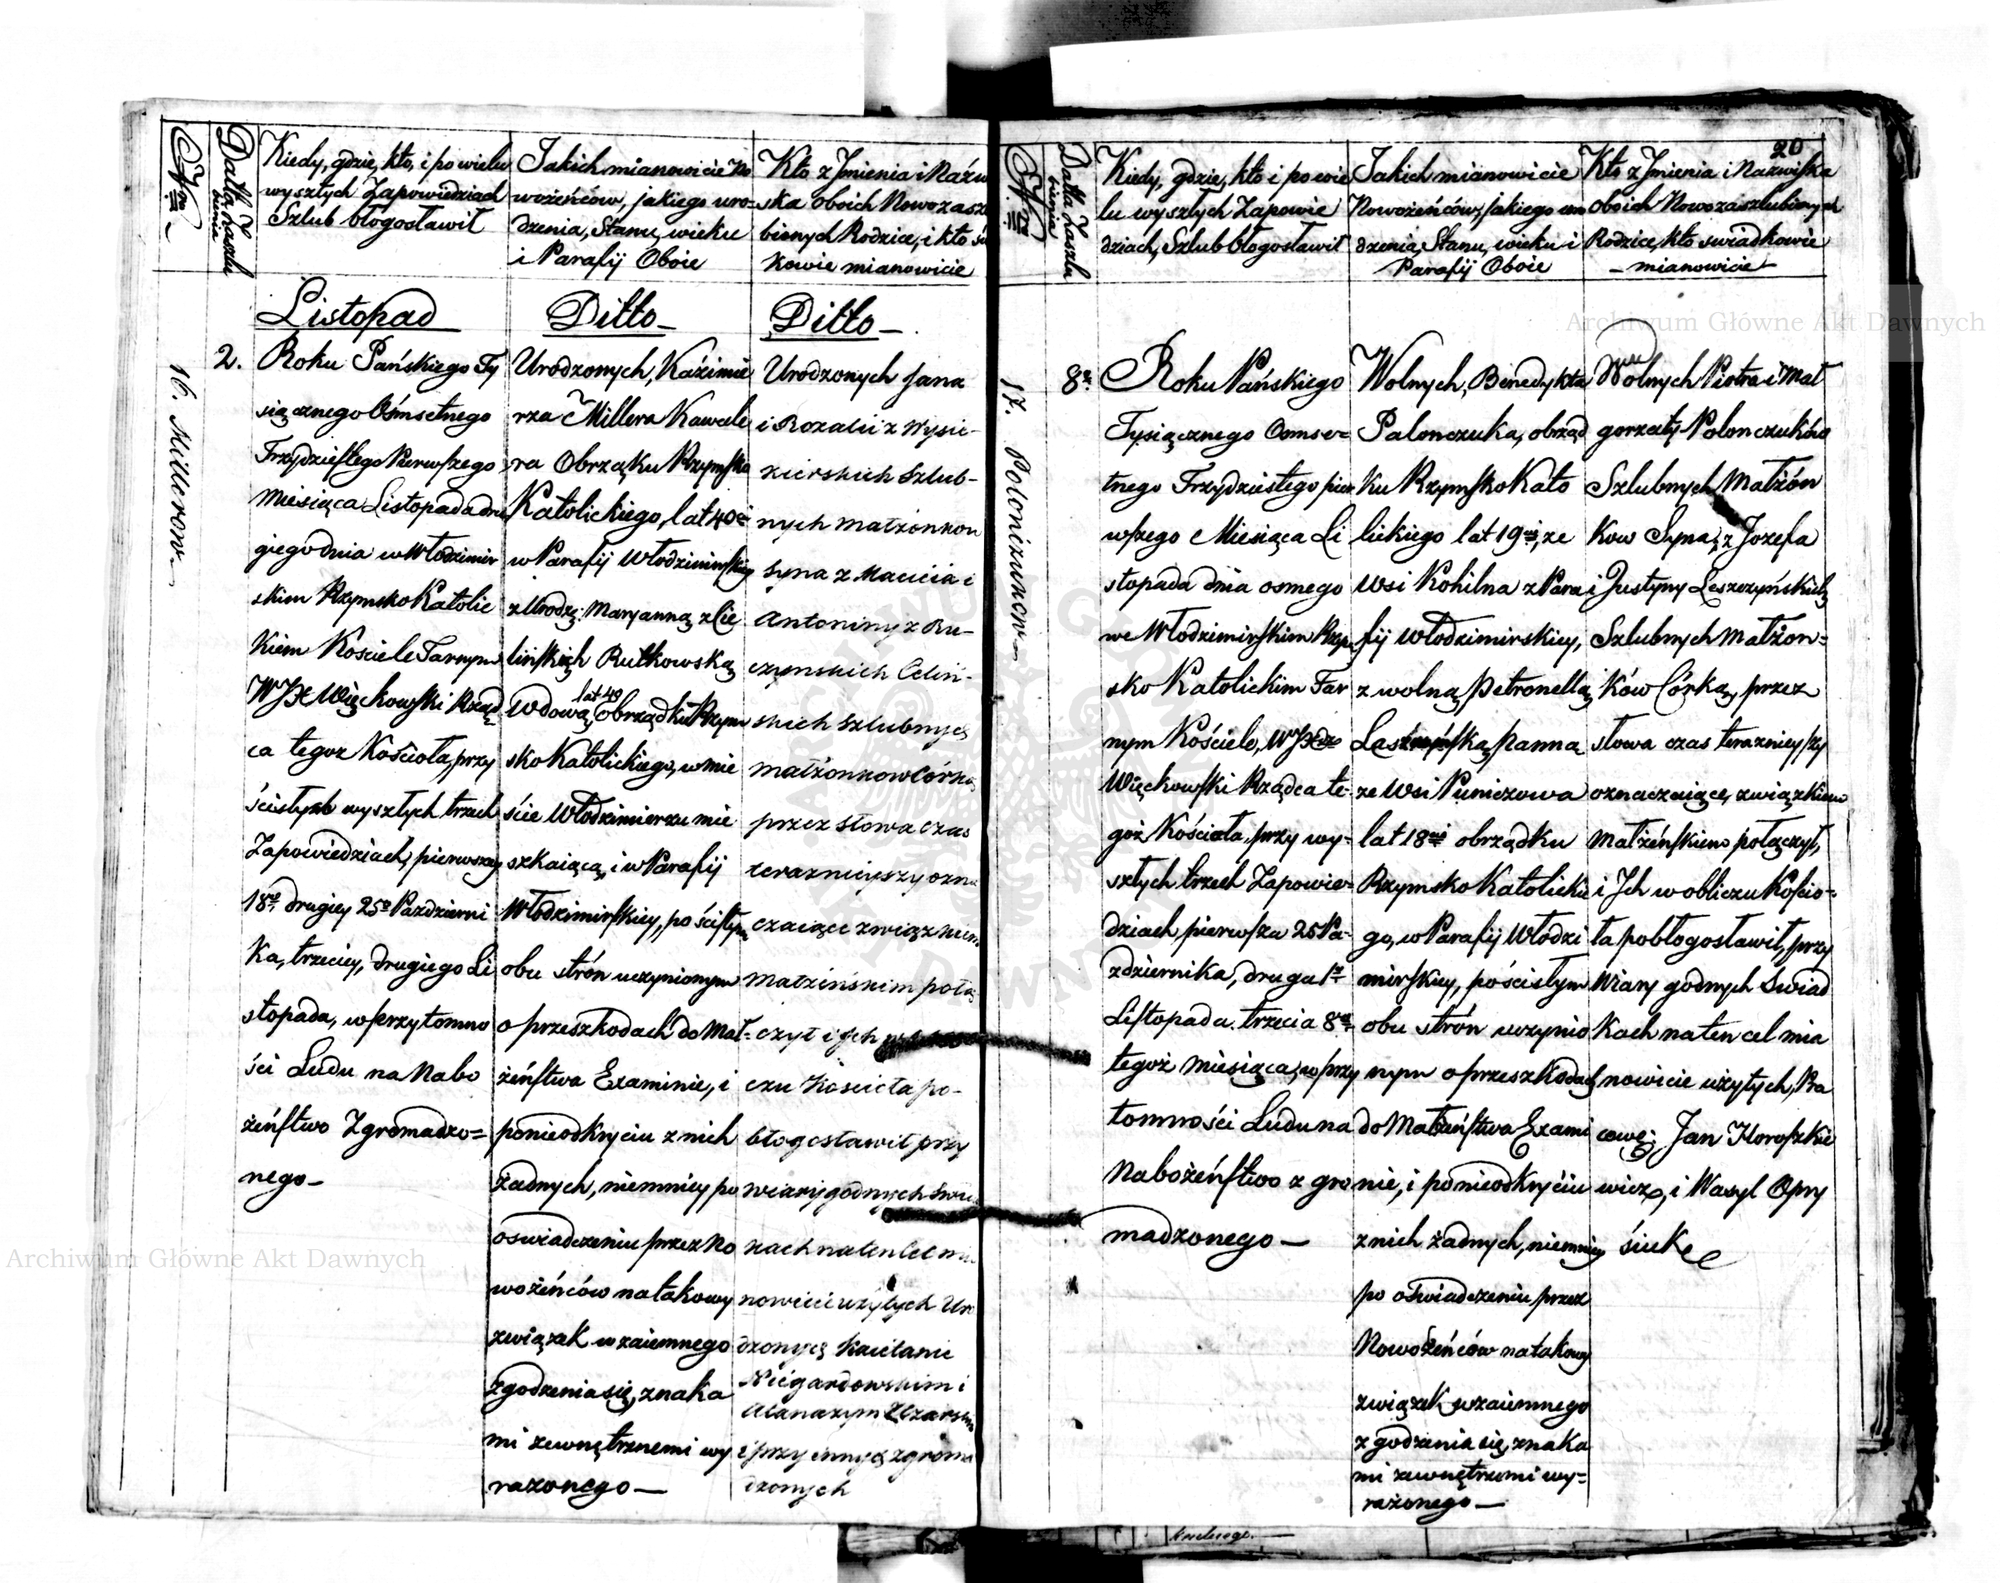 Nra
Datta Zaszlu
bienia
Kiedy, gdzie, kto, i po wielu
wyszłych Zapowiedziach
Szlub błogosławił
Jakich mianowicie No
wożeńców, jakiego uro-
dzenia, Stanu, wieku
i Parafij Oboie
Kto z Jmienia i Nazw
ska oboich Nowozaszl
bionych Rodzice, i kto św
kowie mianowicie
16. Millerow
2.
Listopad
Roku Pańskiego Ty
siącznego Ośmsetnego
Trzydziestego Pierwszego
Miesiąca Listopada dru
giego dnia w Włodzimir
skim Rzymsko Katolic
kiem Kościele Farnym
WJX Więckowski Rząd
ca tegoz Kościoła, przy
ścisłych wyszłych trzech
Zapowiedziach, pierwszey
18o, drugiey 25o Pazdzierni
ka, trzeciey, drugiego Li
stopada, w przytomno
ści Ludu na Nabo
żeństwo Zgromadzo=
nego
Ditto
Urodzonych, Kaźimie
rza Millera Kawale
ra Obrządku Rzymsko
Katolickiego, lat 40
w Parafij Włodzimirskiey
z Urodz: Maryanną z Cie
lińskich Rutkowską
lat 40
Wdową obrządku Rzym
sko Katolickiego, w mie
ście Włodzimierzu mie
szkaiącą, i w Parafij
Włodzimirskiey, po ścisłym
obu strón uczynionym
o przeszkodach do Mał-
żeństwa Examinie, i
ponieodkryciu z nich
żadnych, niemniey po
oświadczeniu przez No
wożeńców na takowy
związek wzaiemnego
zgodzenia się, znaka
mi zewnętrznemi wy
rażonego
Ditto
Urodzonych Jana
i Rozalii z Wysie-
kierskich Szlub-
nych małżonkow
Syna z Macieia i
Antoniny z Bu-
czynskich Celiń-
skich Szlubnych
małżonkow Córką
przez słowa czas
teraznieyszy ozna
czaiące związkiem
małżińskim połą
czył i Jch
czu Kościoła po-
błogosławił przy
wiarygodnych Swia
kach na ten Cel mia
nowicie użytych Uro
dzonych Kaietanie
Niegardowskim i
Atanazym Uzarskim
i przy innych zgroma
dzonych
20
Nra
Datta Zaszlu
bienia
Kiedy, gdzie, kto i po wie
lu wyszłych Zapowie
dziach, Szlub błogosławił
Jakich mianowicie
Nowożeńców, jakiego uro
dzenia, Stanu, wieku i
Parafij Oboie
Kto z Jmienia i Nazwiska
oboich Nowozaszlubionych
Rodzice, kto świadkowie
mianowicie
17. Polonczukow
8o
Roku Pańskiego
Tysiącznego Osmse=
tnego Trzydziestego pier
wszego Miesiąca Li
stopada dnia osmego
we Włodzimirskim Rzym
sko Katolickim Far
nym Kościele, WJXdz
Więckowski Rządca te-
goż Kościoła, przy wy-
szłych trzech Zapowie-
dziach, pierwsza 25 Pa-
zdziernika, druga 1o
Listopada. trzecia 8o
tegoż miesiąca, w przy
tomności Ludu na
Nabożeństwo z gro
madzonego
Wolnych, Benedykta
Palonczuka, obrząd
ku Rzymsko Kato
lickiego lat 19, ze
wsi Kohilna z Para
fij Włodzimirskiey,
z wolną Petronellą
Leszczyńską, Panna
ze Wsi Puniczowa
lat 18 obrządku
Rzymsko Katolickie
go, w Parafij Włodzi
mirskiey, po ścisłym
obu strón uczynio
nym o przeszkodach
do Małżeństwa Exami
nie, i ponieodkryciu
z nich żadnych, niemniey
po oświadczeniu przez
Nowożeńców na takowy
związek wzaiemnego
zgodzenia się, znaka
mi zewnętrznemi wy=
rażonego
Wolnych Piotra i Mał
gorzaty Polonczuków
Szlubnych Małżón
kow Syna, z Jozefa
i Justyny Leszczyńskich
Szlubnych Małżon=
ków Córką, przez
słowa czas teraznieyszy
oznaczaiące, związkiem
Małżeńskiem połączył,
i Jch w obliczu Kościo=
ła pobłogosławił, przy
Wiary godnych Swiad
kach na ten cel mia
nowicie użytych, Pra
cowę: Jan Horoszkie
wicz, i Wasyl Opry
śiuk
Archiwum Główne Akt Dawnych
Archiwum Główne Akt Dawnych